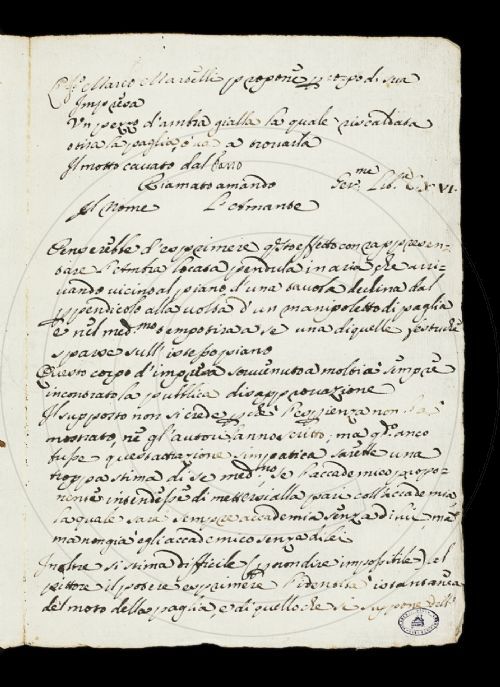 Marco Martelli propone p corpo di sua
Impresa
Un pezzo d'ambra gialla la quale riscaldata
o tira la paglia, o va a trovarla
Il motto cavato dal
Riamato amando Ger.me Lib. C. XVI.
Il Nome L'Amante
Penserebbe d'esprimere q.to effetto con rappresen-
tare l'Ambra locata pendula in aria che arri-
vando vicino al piano d'una tavola declina dal
ppendicolo alla volta d'un manipoletto di paglia
e nel med.mo tempo tira a se una di quelle festuche
sparse sull'istesso piano
Questo corpo d'impresa sovvenuto a molti à sempre
incontrato la pubblica disapprovazione
Il supposto non si crede pche l'esperienza non l'à
mostrato, né gl'autori l'anno scritto; ma q.do anco
fusse questa attrazione simpatica sarebbe una
troppa stima di se med.mo, se l'accademico propo-
nente intendesse di mettersi alla pari coll'accademia
la quale sarà sempre accademia senza di lui, ma
ma non già egli accademico senza di lei
Inoltre si stima difficile (p non dire impossibile) al
pittore il potere esprimere l'idenità istantanea
del moto della paglia, e di quello che si suppone dell'